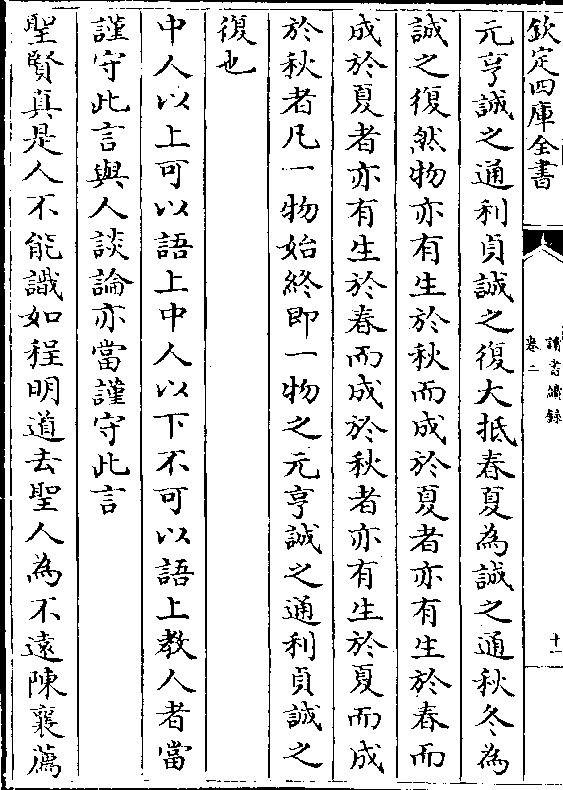 欽定四庫全書
讀書續錄
卷二
十一
元亨誠之通利貞誠之復大抵春夏為誠之通秋冬為
誠之復然物亦有生於秋而成於夏者亦有生於春而
成於夏者亦有生於春而成於秋者亦有生於夏而成
於秋者凡一物始終即一物之元亨誠之通利貞誠之
復也
中人以上可以語上中人以下不可以語上教人者當
謹守此言與人談論亦當謹守此言
聖賢真是人不能識如程明道去聖人為不遠陳襄薦